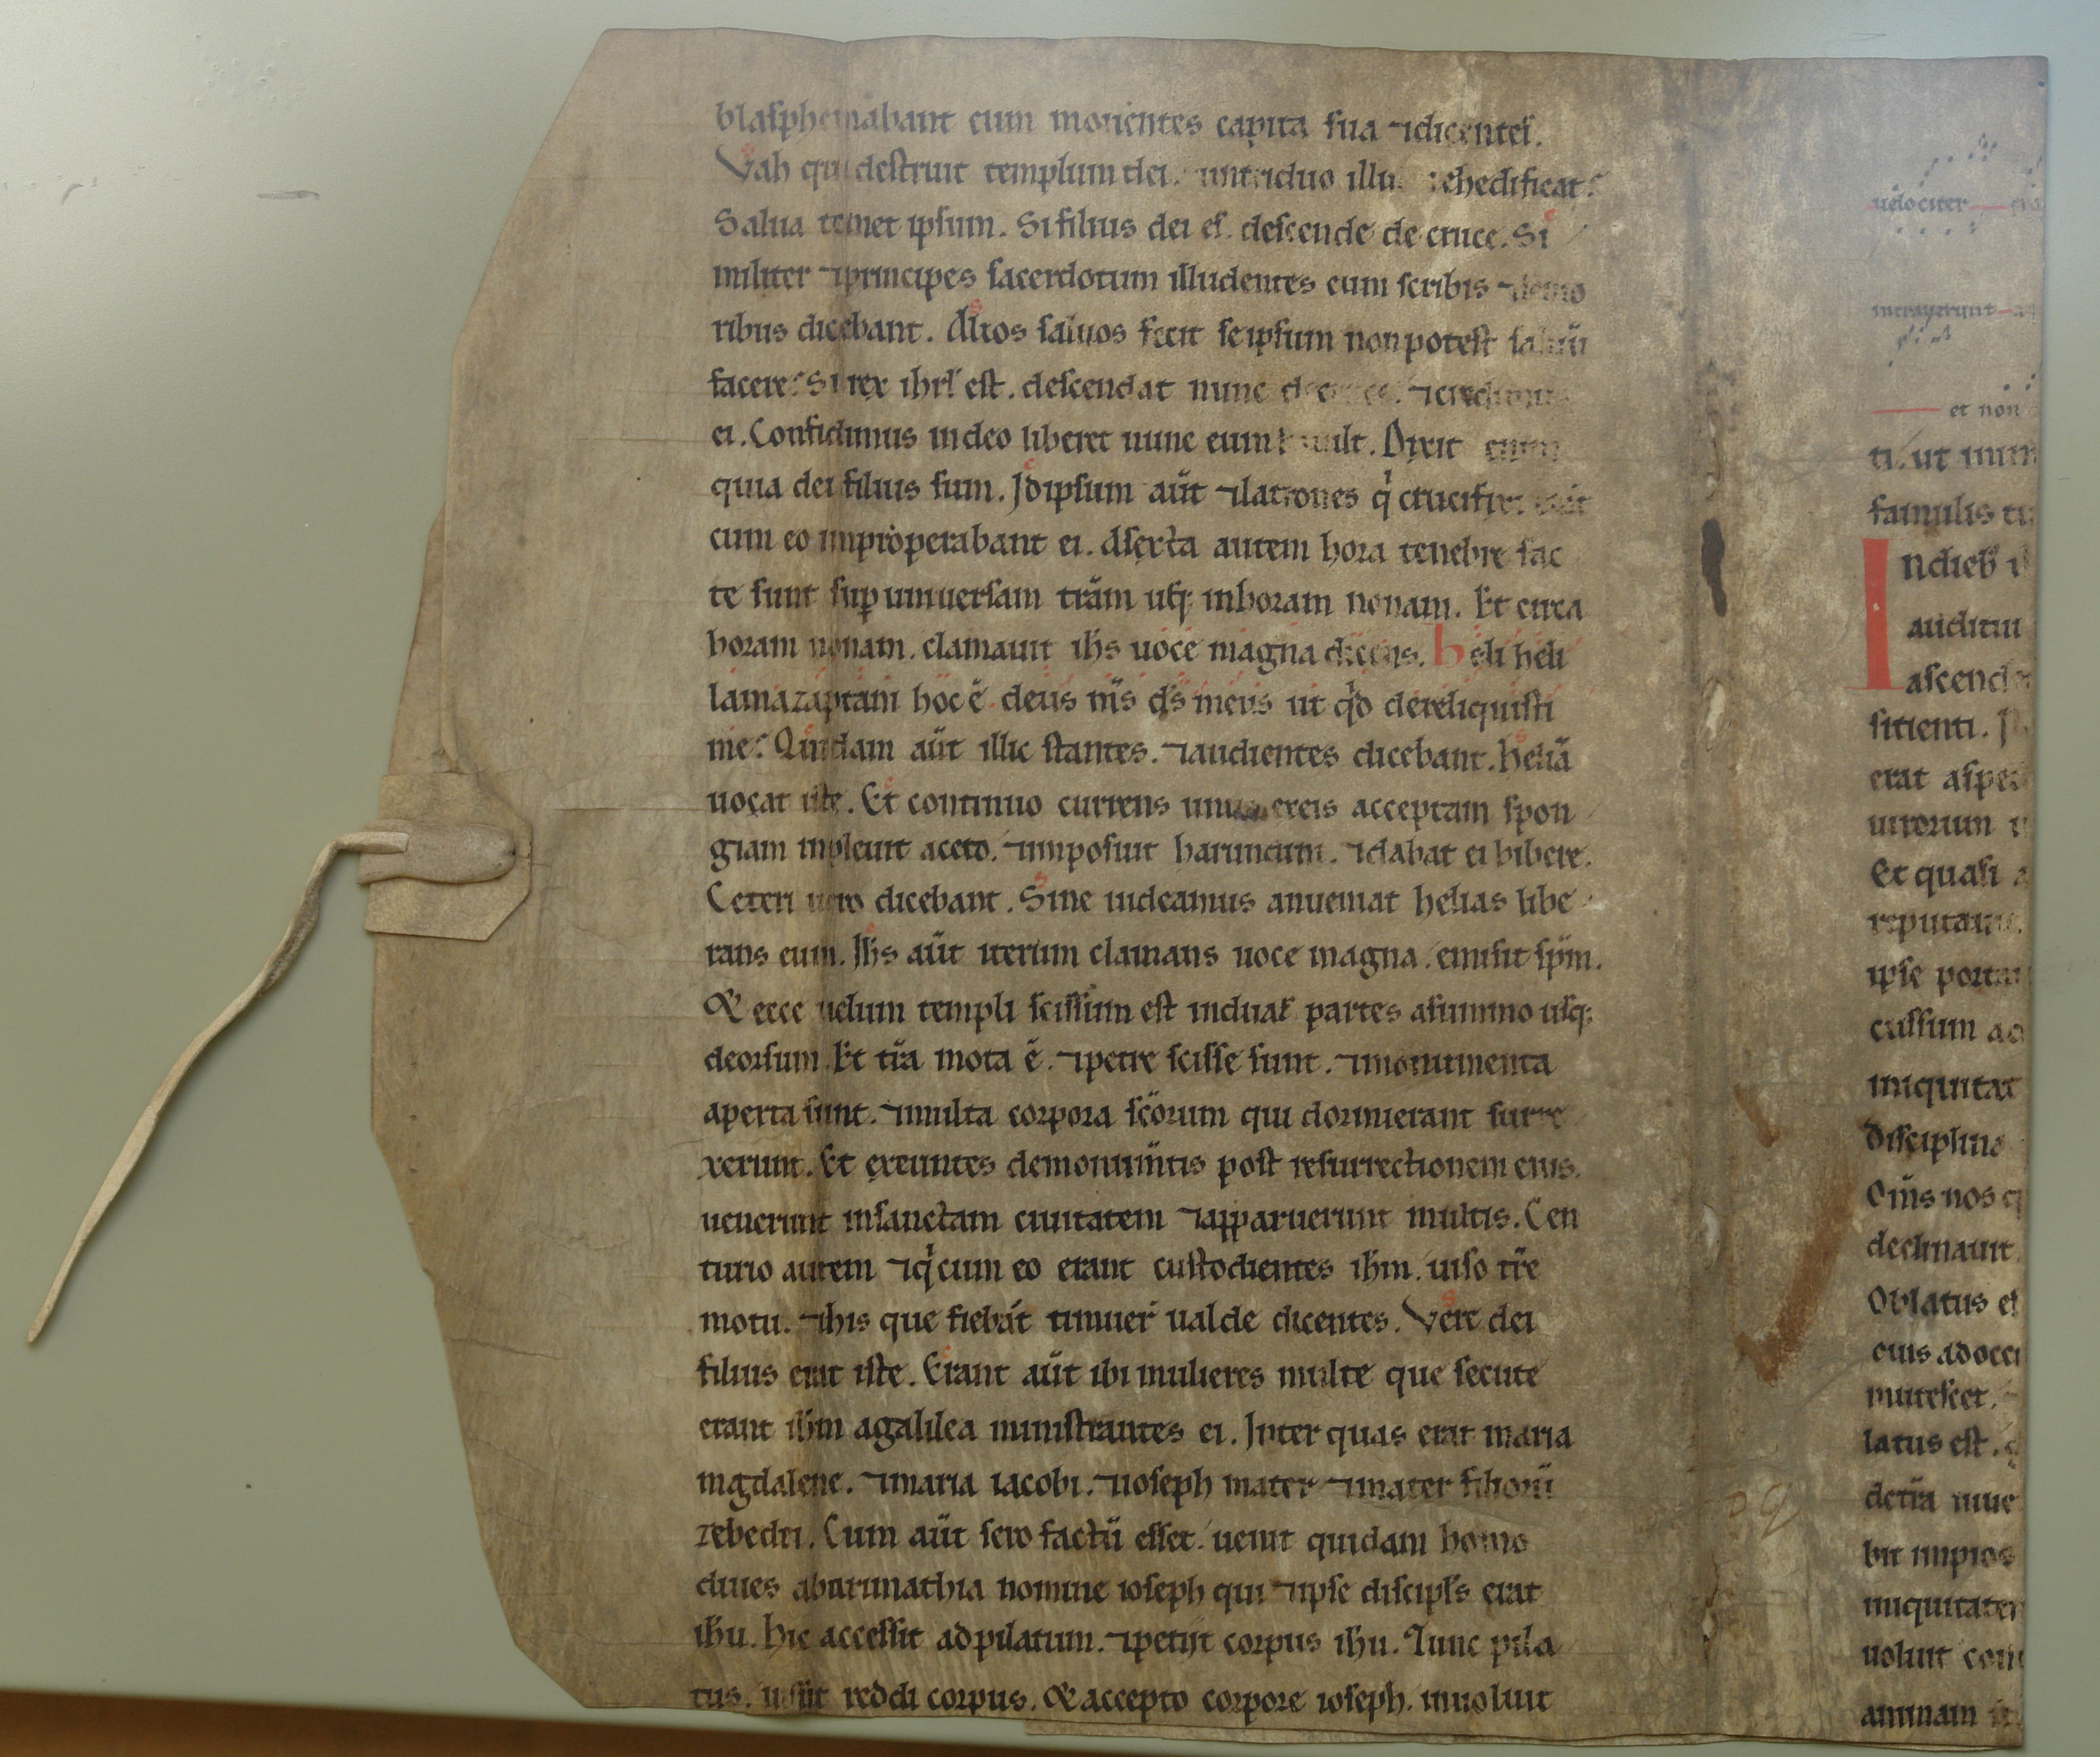 blasphemabant eum mouentes capita sua ⁊dicentes.
Vah qui destruit templum dei. intriduo illu rehedificat.
Salua temet ipsum. Si filius dei es. descende de cruce. Si
militer ⁊principes sacerdotum illudentes cum scribis ⁊senio
ribus dicebant. Alios saluos fecit seipsum nonpotest saluū
facere. Si rex ihrl' est. descendat nunc decruce. ⁊credimus
ei. Confidimus indeo liberet nunc eum uult. Dixit enim
quia dei filius sum. Idipsum aūt ⁊latrones q crucifixi erāt
cum eo improperabant ei. Asexta autem hora tenebre fac
te sunt sup uniuersam trām usq; inhoram nonam. Et circa
horam nonam. clamauit ihs uoce magna dicens. heli heli
lamazaptani hoc ē deus ms ds meus ut qd dereliquisti
me. Quidam aūt illic stantes. ⁊audientes dicebant. heliā
uocat iste. Et continuo currens unus exeis acceptam spon
giam inpleuit aceto. ⁊imposuit harundini. ⁊dabat ei bibere.
Ceteri uero dicebant. Sine uideamus anueniat helias libe
rans eum. Ihs aūt iterum clamans uoce magna. emisit spm.
& ecce uelum templi scissum est induas partes asummo usq;
deorsum. Et tra mota ē. ⁊petre scisse sunt. ⁊monumenta
aperta sunt. ⁊multa corpora scorum qui dormierant surre
xerunt. Et exeuntes demonumtis post resurrectionem eius.
uenerunt insanctam ciuitatem ⁊apparuerunt multis. Cen
turio autem ⁊q cum eo erant custodientes ihm. uiso tre
motu. ⁊his que fiebāt timuer ualde dicentes. Vere dei
filius erat iste. Erant aūt ibi mulieres multe que secute
erant ihm agalilea ministrantes ei. Inter quas erat maria
magdalene. ⁊maria iacobi. ⁊ioseph mater ⁊mater filiorū
zebedei. Cum aūt sero factū esset. uenit quidam homo
diues abarimathia nomine ioseph qui ⁊ipse discipls erat
ihu. hic accessit adpilatum. ⁊petiit corpus ihu. Tunc pila
tus. iussit reddi corpus. & accepto corpore ioseph. inuoluit
uelociter
et non
ti. ut
famulis
Indieb
auditui
ascend
sitienti.
erat aspec
uirorum
Et quasi
reputa
ipse porta
cussum
iniquitat
disciplina
Oms nos
declinauit
Oblatus es
eius adocci
mutescet.
latus est.
detra
bit impios
iniquitate
uoluit con
animam